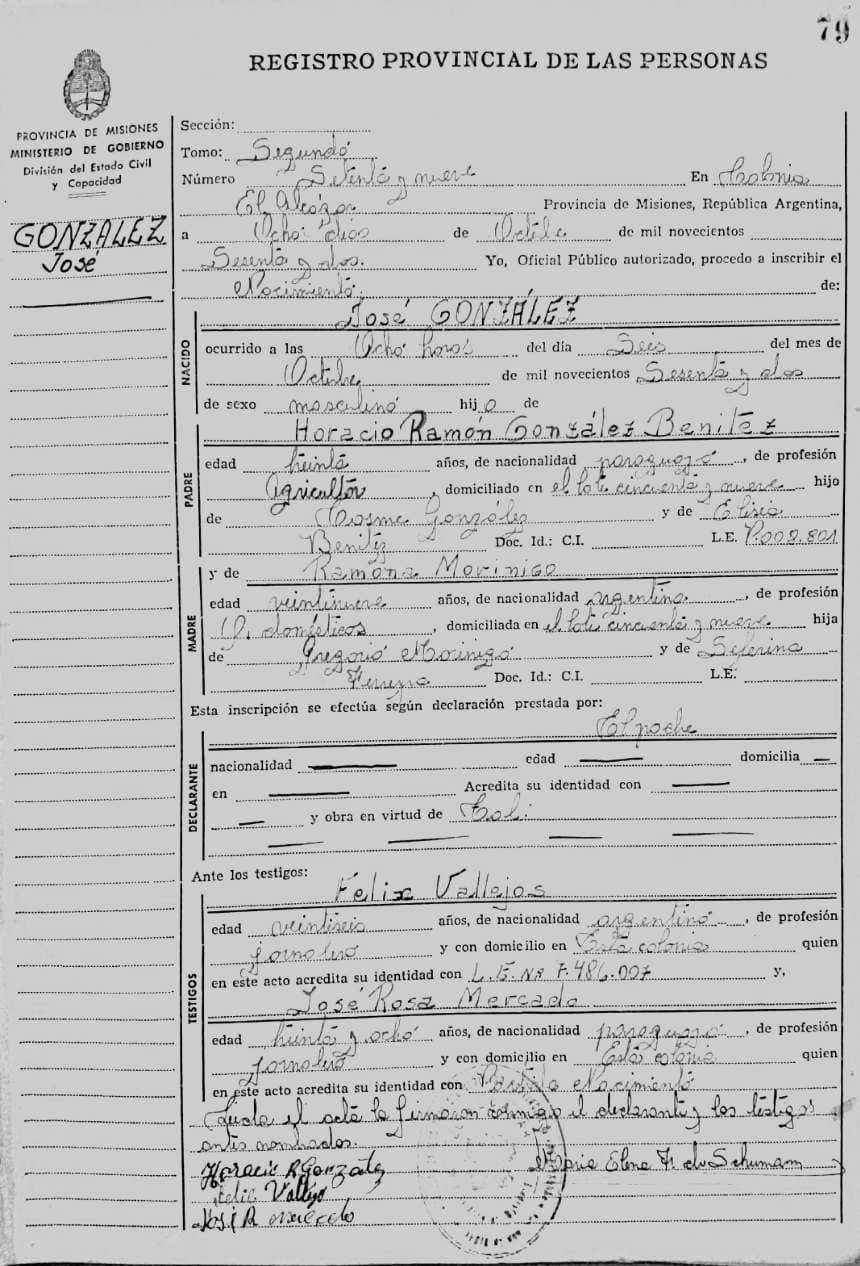 79
REGISTRO PROVINCIAL DE LAS PERSONAS
PROVINCIA DE MISIONES
MINISTERIO DE GOBIERNO
División del Estado Civil
y Capacidad
GONZALEZ
José
Sección:
Tomo: Segundo
Número Setenta y nueve En Colonia
El Alcázar Provincia de Misiones, República Argentina,
a Ocho días de Octubre de mil novecientos
Sesenta y dos. Yo, Oficial Público autorizado, procedo a inscribir el
Nacimiento. de:
NACIDO
José GONZÁLEZ
ocurrido a las Ocho horas del día Seis del mes de
Octubre de mil novecientos Sesenta y dos
de sexo masculino hijo de
PADRE
Horacio Ramón González Benitez
edad treinta años, de nacionalidad paraguayo, de profesión
Agricultor, domiciliado en el lote cincuenta y nueve hijo
de Cosme González y de Elisia
Benitez Doc. Id.: C.I. L.E. 7.002.801
MADRE
y de Ramona Morinigo
edad veintinueve años, de nacionalidad argentina, de profesión
Q. domésticos, domiciliada en el lote cincuenta y nueve hija
de Gregorio Morinigo y de Seferina
Ferreyra Doc. Id.: C.I. L.E.
Esta inscripción se efectúa según declaración prestada por:
El padre
DECLARANTE
nacionalidad edad domicilia
en Acredita su identidad con
y obra en virtud de Tal.
Ante los testigos:
TESTIGOS
Felix Vallejos
edad veintiseis años, de nacionalidad argentino, de profesión
jornalero y con domicilio en Esta colonia quien
en este acto acredita su identidad con L.E. Nº 7.486.007 y,
José Rosa Mercado
edad treinta y ocho años, de nacionalidad paraguayo, de profesión
Jornalero y con domicilio en Esta colonia quien
en este acto acredita su identidad con Partida Nacimiento
Leída el acta la firmaron conmigo el declarante y los testigos
antes nombrados.
Horacio R Gonzalez
Maria Elena F. de Schumann
Felix Vallejo
José R Mercado